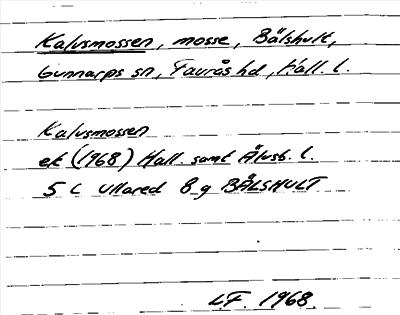 Kalvsmossen, mosse, Bälshult,
Gunnarps sn, Faurås hd, Hall. l.
Kalvsmossen
ek (1968) Hall. samt Älvsb. l.
5 C Ullared 8 g BÄLSHULT
L.F. 1968.